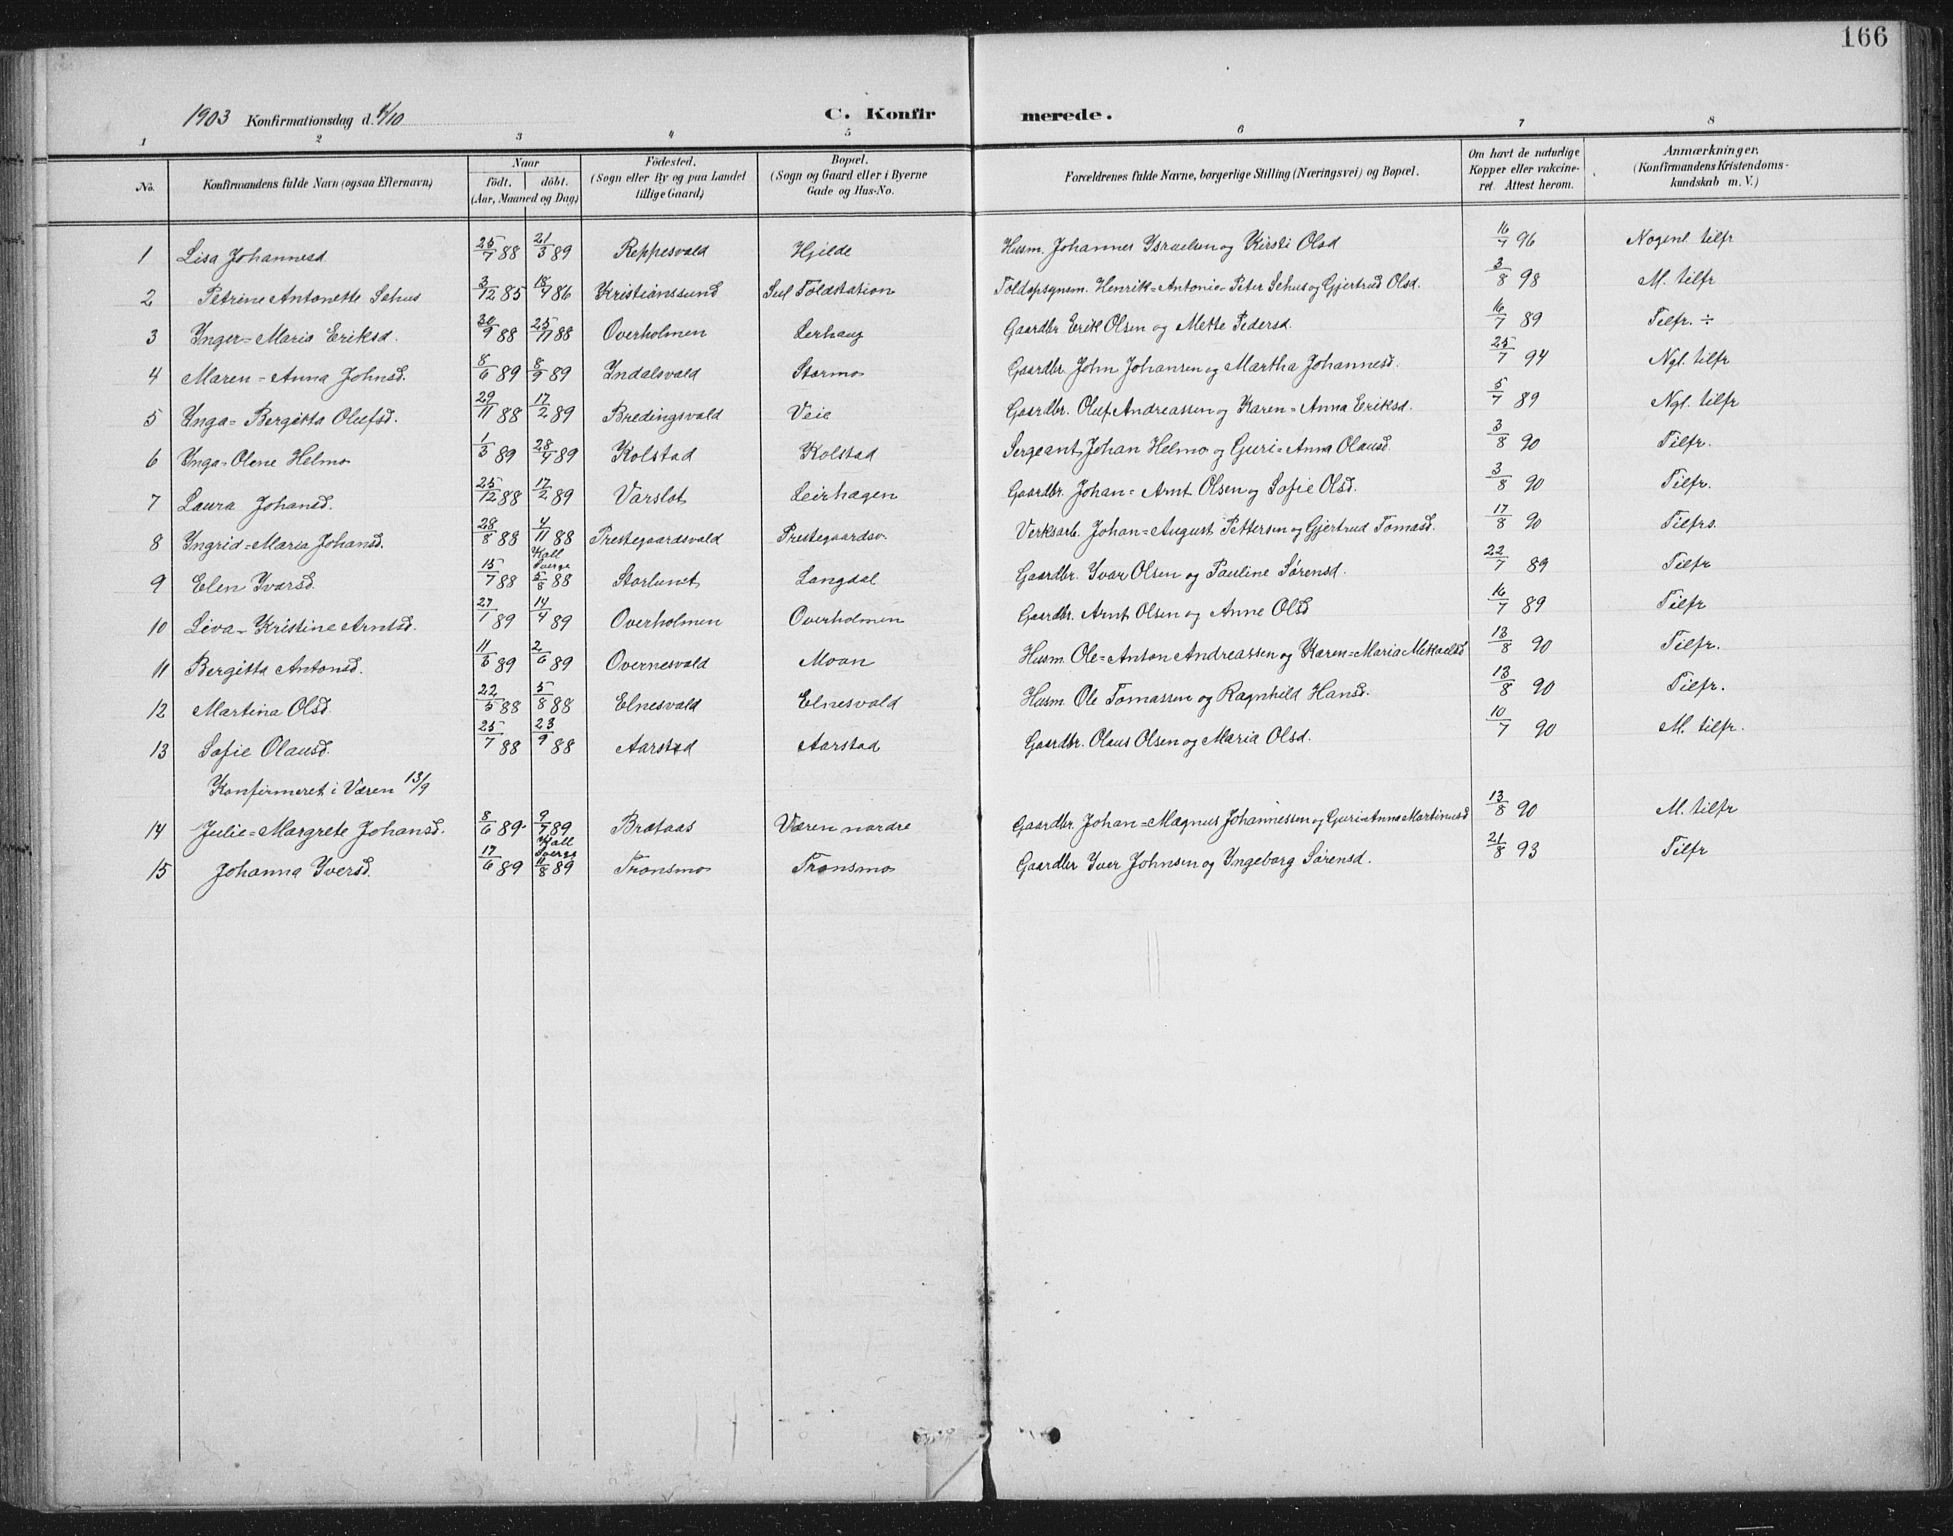 166
1903 Konfirmationsdag d. 4/10 C. Konfirmerede.
1 2 3 4 5 6 7 8
No. Konfirmandens fulde Navn (ogsaa Efternavn) Naar født. døbt. (Aar, Maaned og Dag) Fødested. (Sogn eller By og paa Landet tillige Gaard) Bopæl. (Sogn og Gaard eller i Byerne Gade og Hus-No. Forældrenes fulde Navne, borgerlige Stilling (Næringsvei) og Bopæl. Om havt de naturlige Kopper eller vakcineret. Attest herom. Anmærkninger. (Konfirmandens Kristendomskundskab m. V.)
1 Lisa Johannesd 25/7 88 21/3 89 Reppesvald Hjilde Husm. Johannes Israelsen og Kirsti Olsd 16/7 96 Nogenl tilfr
2 Petrine Antonette Sehus 3/12 85 18/4 86 Kristianssund Sul Toldstation Toldopsynsm. Henrik=Antonie=Peter Sehus og Gjertrud Olsd. 3/8 98 M. tilfr
3 Ynger=Maria Eriksd. 30/9 88 25/11 88 Overholmen Lerhaug Gaardbr. Erik Olsen og Mette Pedersd. 16/7 89 Tilfr. ÷
4 Maren=Anna Johnsd. 8/6 89 8/9 89 Yndalsvald Stormo Gaardbr. John Johansen og Martha Johannesd. 25/7 94 Ngl. tilfr
5 Ynga=Bergitta Olufsd. 29/11 88 17/2 89 Bredingsvald Veie Gaardbr. Oluf Andreassen og Karen=Anna Eriksd. 5/7 89 Ngl. tilfr
6 Ynga=Olene Helmo 1/3 89 28/4 89 Kolstad Kolstad Sergeant Johan Helmo og Guri=Anna Olausd. 3/8 90 Tilfr.
7 Laura Johansd. 25/12 88 17/2 89 Varslot Leirhagen Gaardbr. Johan=Arnt Olsen og Sofie Olsd. 3/8 90 Tilfr.
8 Yngrid=Maria Johansd. 28/8 88 4/11 88 Prestegaardsvald Prestegaardsv. Verksarb. Johan=August Pettersen og Gjertrud Tomasd. 17/8 90 Tilfrs.
Kall Sverge
9 Elen Yvarsd. 15/7 88 5/8 88 Storlunet Langdal Gaardbr. Yvar Olsen og Pauline Sørensd. 22/7 89 Tilfr
10 Liva=Kristine Arntsd. 27/1 89 14/4 89 Overholmen Overholmen Gaardbr. Arnt Olsen og Anne Olsd 16/7 89 Tilfr
11 Bergitta Antonsd. 11/3 89 2/6 89 Overnesvald Moan Husm. Ole=Anton Andreassen og Karen=Maria Mikaelsd 13/8 90 Tilfr.
12 Martina Olsd. 22/5 88 5/8 88 Elnesvald Elnesvald Husm. Ole Tomassen og Ragnhild Hansd. 13/8 90 Tilfr.
13 Sofie Olausd. 25/7 88 23/9 88 Aarstad Aarstad Gaardbr. Olaus Olsen og Maria Olsd. 10/7 90 M. tilfr.
Konfirmeret i Væren 13/9
14 Julie=Margrete Johansd. 8/6 89. 9/7 89 Brataas Væren nordre Gaardbr. Johan=Magnus Johannessen og Guri=Anna Martinusd 13/8 90 M. tilfr
Kall Sverge
15 Johanna Yversd. 17/6 89 11/8 89 Tronsmo Tronsmo Gaardbr Yver Johnsen og Yngeborg Sørensd. 21/8 93 Tilfr